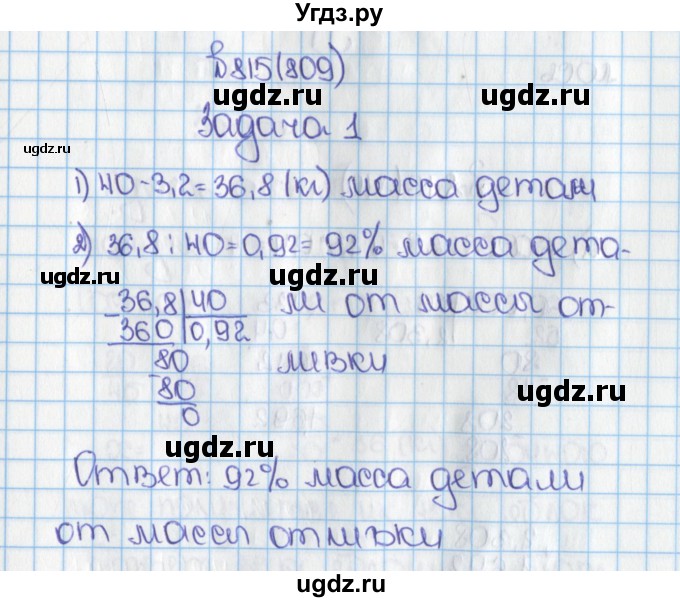 Угдз.ру
№815(809)
ugdz.ru ugdz.ru
Задача 1
ugdz.ru
1) 40-3,2=36,8 (кг) масса детали
2) 36,8:40=0,92=92% масса дета-
ugdz.ru ugdz.ru
36,8 40 ли от массы от-
360 0,92
80 ливки
80 ugdz.ru
0
ugdz.ru
Ответ: 92% масса детали
ugdz.ru
от массы отливки
ugdz.ru